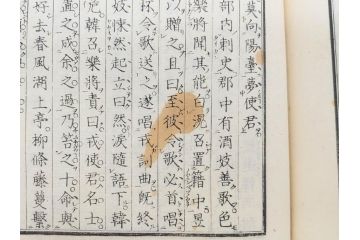 莫向陽臺夢使君
部內刺史郡中有酒妓善歌色
樂將聞其能白滉召置籍中昱
以贈之且曰至彼令歌必首唱
杯令歌送之遂唱戎詞曲既終
妓悚然起立曰然淚隨語下韓
危韓召樂將責曰戎使君名士
置之成余之過乃笞之十命與
好去春風湖上亭柳條藤蔓繫